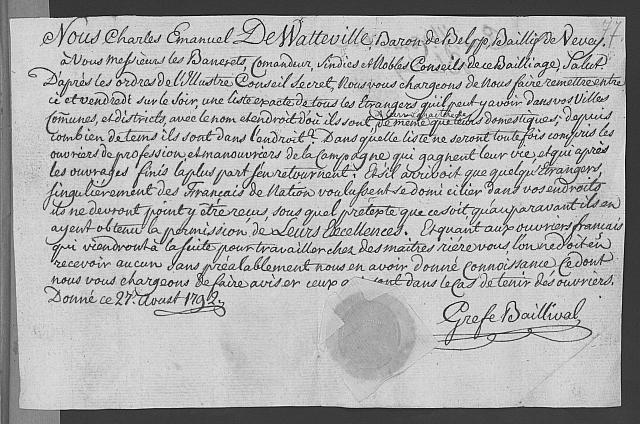 77
Nous Charles Emanuel De Watteville, Baron de Belpp Baillif de Vevey,
à Vous Messieurs les Banerets, Comandeur, Sindics et Nobles Conseils de ce Bailliage, Salut.
D'après les ordres de l'Illustre Conseil Secret, Nous vous chargeons de Nous faire remettre entre
ci et vendredi sur le soir, une liste exacte de tous les Etrangers qu'il peut y avoir dans vos Villes
Comunes, et districts, avec le nom et endroit d'où ils sont, de même que leurs domestiques, depuis
combien de tems ils sont dans l'endroit? Dans quelle liste ne seront toute fois compris les
ouvriers de profession, et manouvriers de la Campagne qui gagnent leur vie, et qui après
les ouvrages finis la plus part s'en retournent: Et s'il arrivoit que quelqu'Etrangers,
singulierement des Français de Nation voulussent se domicilier dans vos endroits
ils ne devront point y être reçus, sous quel prétexte que ce soit qu'auparavant ils en
ayent obtenu la permission de Leurs Excellences. Et quant aux ouvriers français
qui viendront à la suite pour travailler chez des maîtres riére vous l'on ne doit en
recevoir aucun sans préalablement nous en avoir donné connoissance Ce dont
nous vous chargeons de faire aviser ceux qui sont dans le Cas de tenir des ouvriers.
Donné ce 27 Aoust 1792
Grefe Baillival